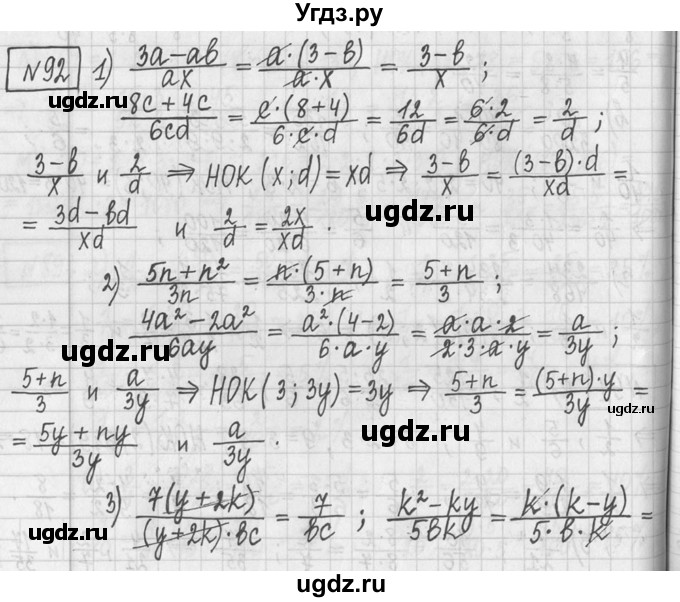 Угдз.ру
№92 1) (3a-ab)/(ax) = (a·(3-b))/(a·x) = (3-b)/x ;
ugdz.ru
(8c+4c)/(6cd) = (c·(8+4))/(6·c·d) = 12/(6d) = (6·2)/(6·d) = 2/d ;
(3-b)/x и 2/d ⇒ НОК(x;d)=xd ⇒ (3-b)/x = ((3-b)·d)/(xd) =
ugdz.ru
= (3d-bd)/(xd) и 2/d = 2x/(xd) .
2) (5n+n²)/(3n) = (n·(5+n))/(3·n) = (5+n)/3 ;
(4a²-2a²)/(6ay) = (a²·(4-2))/(6·a·y) = (a·a·2)/(2·3·a·y) = a/(3y) ;
ugdz.ru
(5+n)/3 и a/(3y) ⇒ НОК(3;3y)=3y ⇒ (5+n)/3 = ((5+n)·y)/(3y) =
ugdz.ru
= (5y+ny)/(3y) и a/(3y) .
ugdz.ru
ugdz.ru
3) (7(y+2k))/((y+2k)·bc) = 7/(bc) ; (k²-ky)/(5bk) = (k·(k-y))/(5·b·k) =
ugdz.ru
ugdz.ru